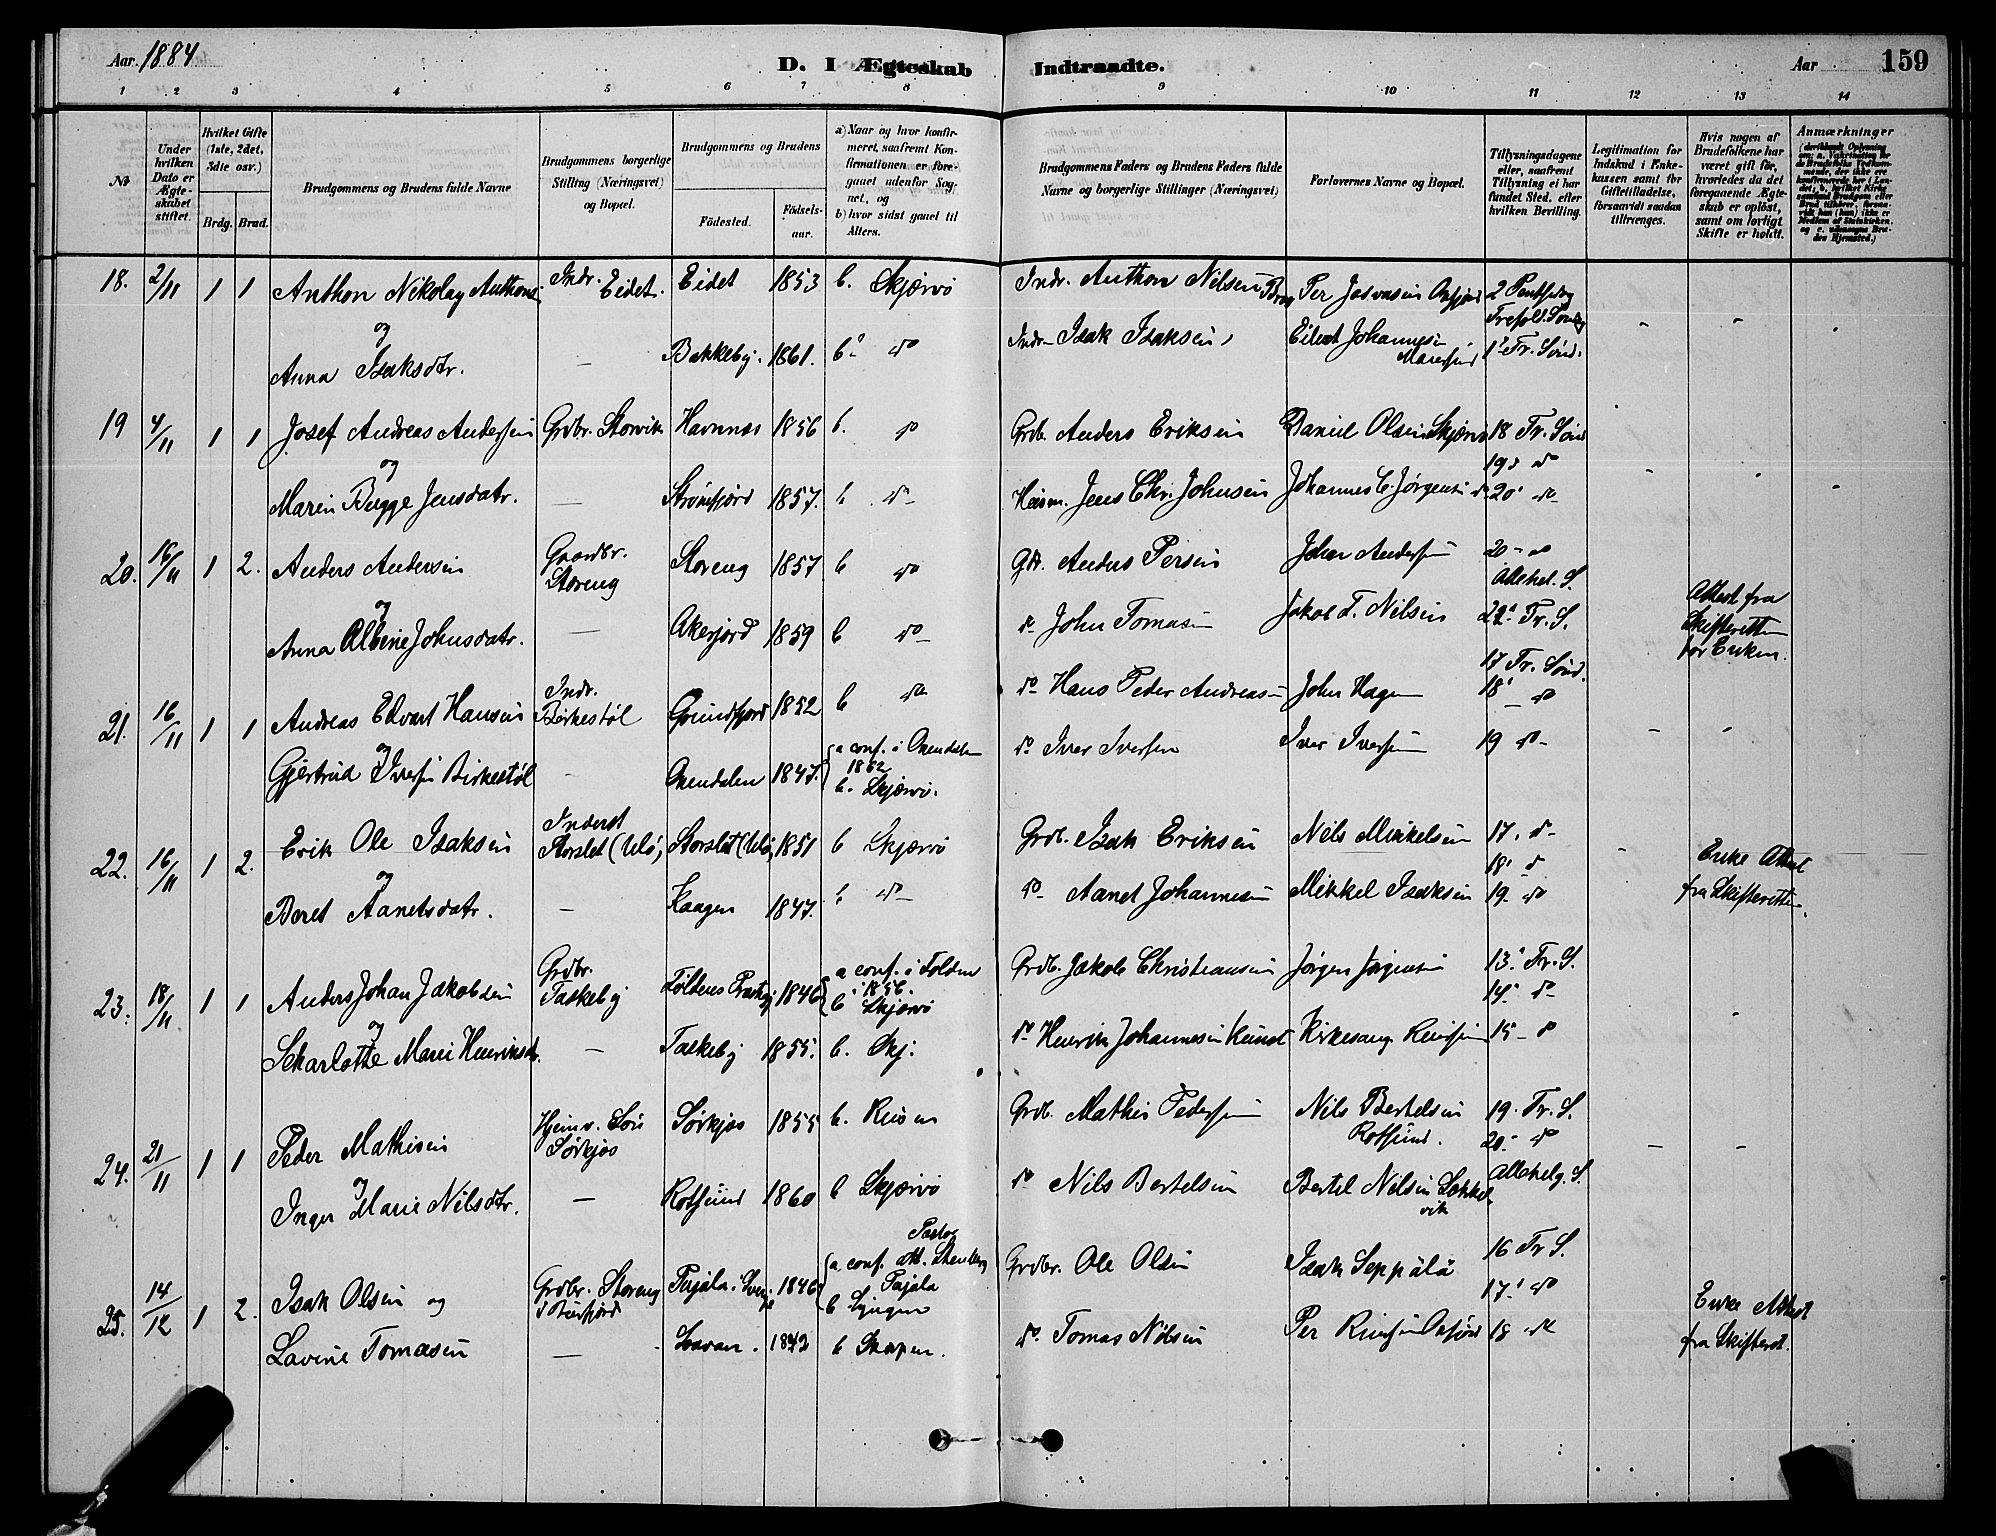 Aar. 1884
D. I Ægteskab
Indtraadte.
Aar
159
1 2 3 4 5 6 7 8 9 10 11 12 13 14
№
Under hvilken Dato er Ægteskabet stiftet.
Hvilket Gifte (1ste, 2det, 3die osv.)
Brdg. Brud.
Brudgommens og Brudens fulde Navne
Brudgommens borgerlige Stilling (Næringsvei) og Bopæl.
Brudgommens og Brudens
Fødested.
Fødselsaar.
a) Naar og hvor konfirmeret, saafremt Konfirmationen er foregaaet udenfor Sognet, og
b) hvor sidst gaaet til Alters.
Brudgommens Faders og Brudens Faders fulde Navne og borgerlige Stillinger (Næringsvei)
Forlovernes Navne og Bopæl.
Tillysningsdagene eller, saafremt Tillysning ei har fundet Sted, efter hvilken Bevilling.
Legitimation for Indskud i Enkekassen samt for Giftetilladelse, forsaavidt saadan tiltrænges.
Hvis nogen af Brudefolkene har været gift før, hvorledes da det foregaaende Ægteskab er opløst, samt om lovligt Skifte er holdt.
Anmærkninger
18. 2/11 1 1 Anthon Nikolay Anthons. Indr. Eidet. Eidet 1853 b. Skjervø Indr. Anthon Nilsen Per Josvasen 2
og
Anna Isaksdtr. — Bakkeby. 1861. b. do Indr. Isak Isaksen, Eilert Johannesen 1' Tr. Sønd.
19 4/11 1 1 Josef Andreas Andersen Grdbr. Storvik Havnnæs 1856 b. do Grdb. Anders Eriksen Daniel Olsen Skjervø 18 Tr. Sønd
og 19 do
Maren Bugge Jensdatr. — Strømfjord 1857. b do Husm. Jens Chr. Johnsen Johannes C. Jørgensen do 20' do
20. 16/11 1 2. Anders Andersen Gaardbr. Storeng Storeng 1857 b do Gdr. Anders Persen Johan Andersen 20 - do
og Allehel. S.
Anna Albine Johnsdatr. — Akerjord 1859 b do do John Tomasen Jakob T. Nilsen 22' Tr. S. Attest fra Skifteretten for Enken.
21. 16/11 1 1 Andreas Edvart Hansen Indr. Birkestøl Grundfjord 1852 b do do Hans Peder Andreasen John Hagen 17 Tr. Sønd. 18' do
og
Gjertrud Iversen Birkestøl — Øxendalen 1847. a conf. i Øxendalen 1862 b. Skjervø. do Iver Iversen Iver Iversen 19 do
22. 16/11 1 2. Erik Ole Isaksen Inderst Storslet (Uløi) Storslet (Uløi) 1851 b Skjervø Grdb. Isak Eriksen Nils Mikkelsen 17. do
og 18' do
Beret Aanetsdatr. — Kaagen 1847. b do do Aanet Johannesen Mikkel Isaksen 19. do Enke Attest fra Skifteretten.
23. 18/11 1 1 Anders Johan Jakobsen Grdbr. Taskeby Foldens Præstegj 1846 a conf. i Folden 1856. b Skjervø Grdb. Jakob Christiansen Jørgen Jørgensen 13' Tr. S. 14' do
og
Scharlotte Marie Henriksdtr. — Taskeby 1855. b. Skj. do Henrik Johannesen Kirkesang. 15 do
24. 21/11 1 1 Peder Mathisen Sørkjos Sørkjos 1855 b. Reisen Grdb. Mathis Pedersen Nils Bertelsen Rotsund. 19. Tr. S. 20 do
og
Inger Marie Nilsdtr. — Rotsund 1860 b Skjervø do Nils Bertelsen Bertel Nilsen Allehelg. S.
25. 14/12 1 2. Isak Olsen og Grdbr. Storeng Pajala. 1846 a conf. Pastor Pajala b Lyngen Grdbr. Ole Olsen Isak Seppälä 16 Tr S. 17' do
Lavine Tomasen — Lavan. 1842 b do Tomas Nilsen Per 18 do Enke Attest fra Skifteret.